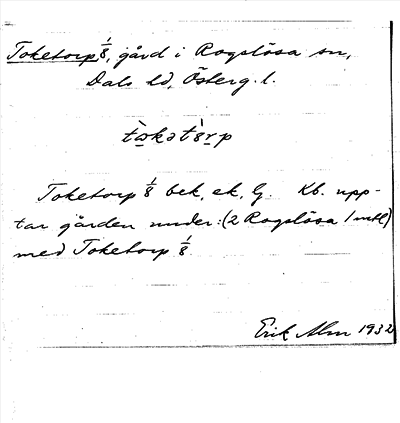 Toketorp 1/8, gård i Rogslösa sn,
Dals hd, Österg. l.
Toketorp 1/8 bek, ek, lg. Kb. upp-
tar gården under: (2 Rogslösa 1 mtl)
med Toketorp 1/8
Erik Alm 1932